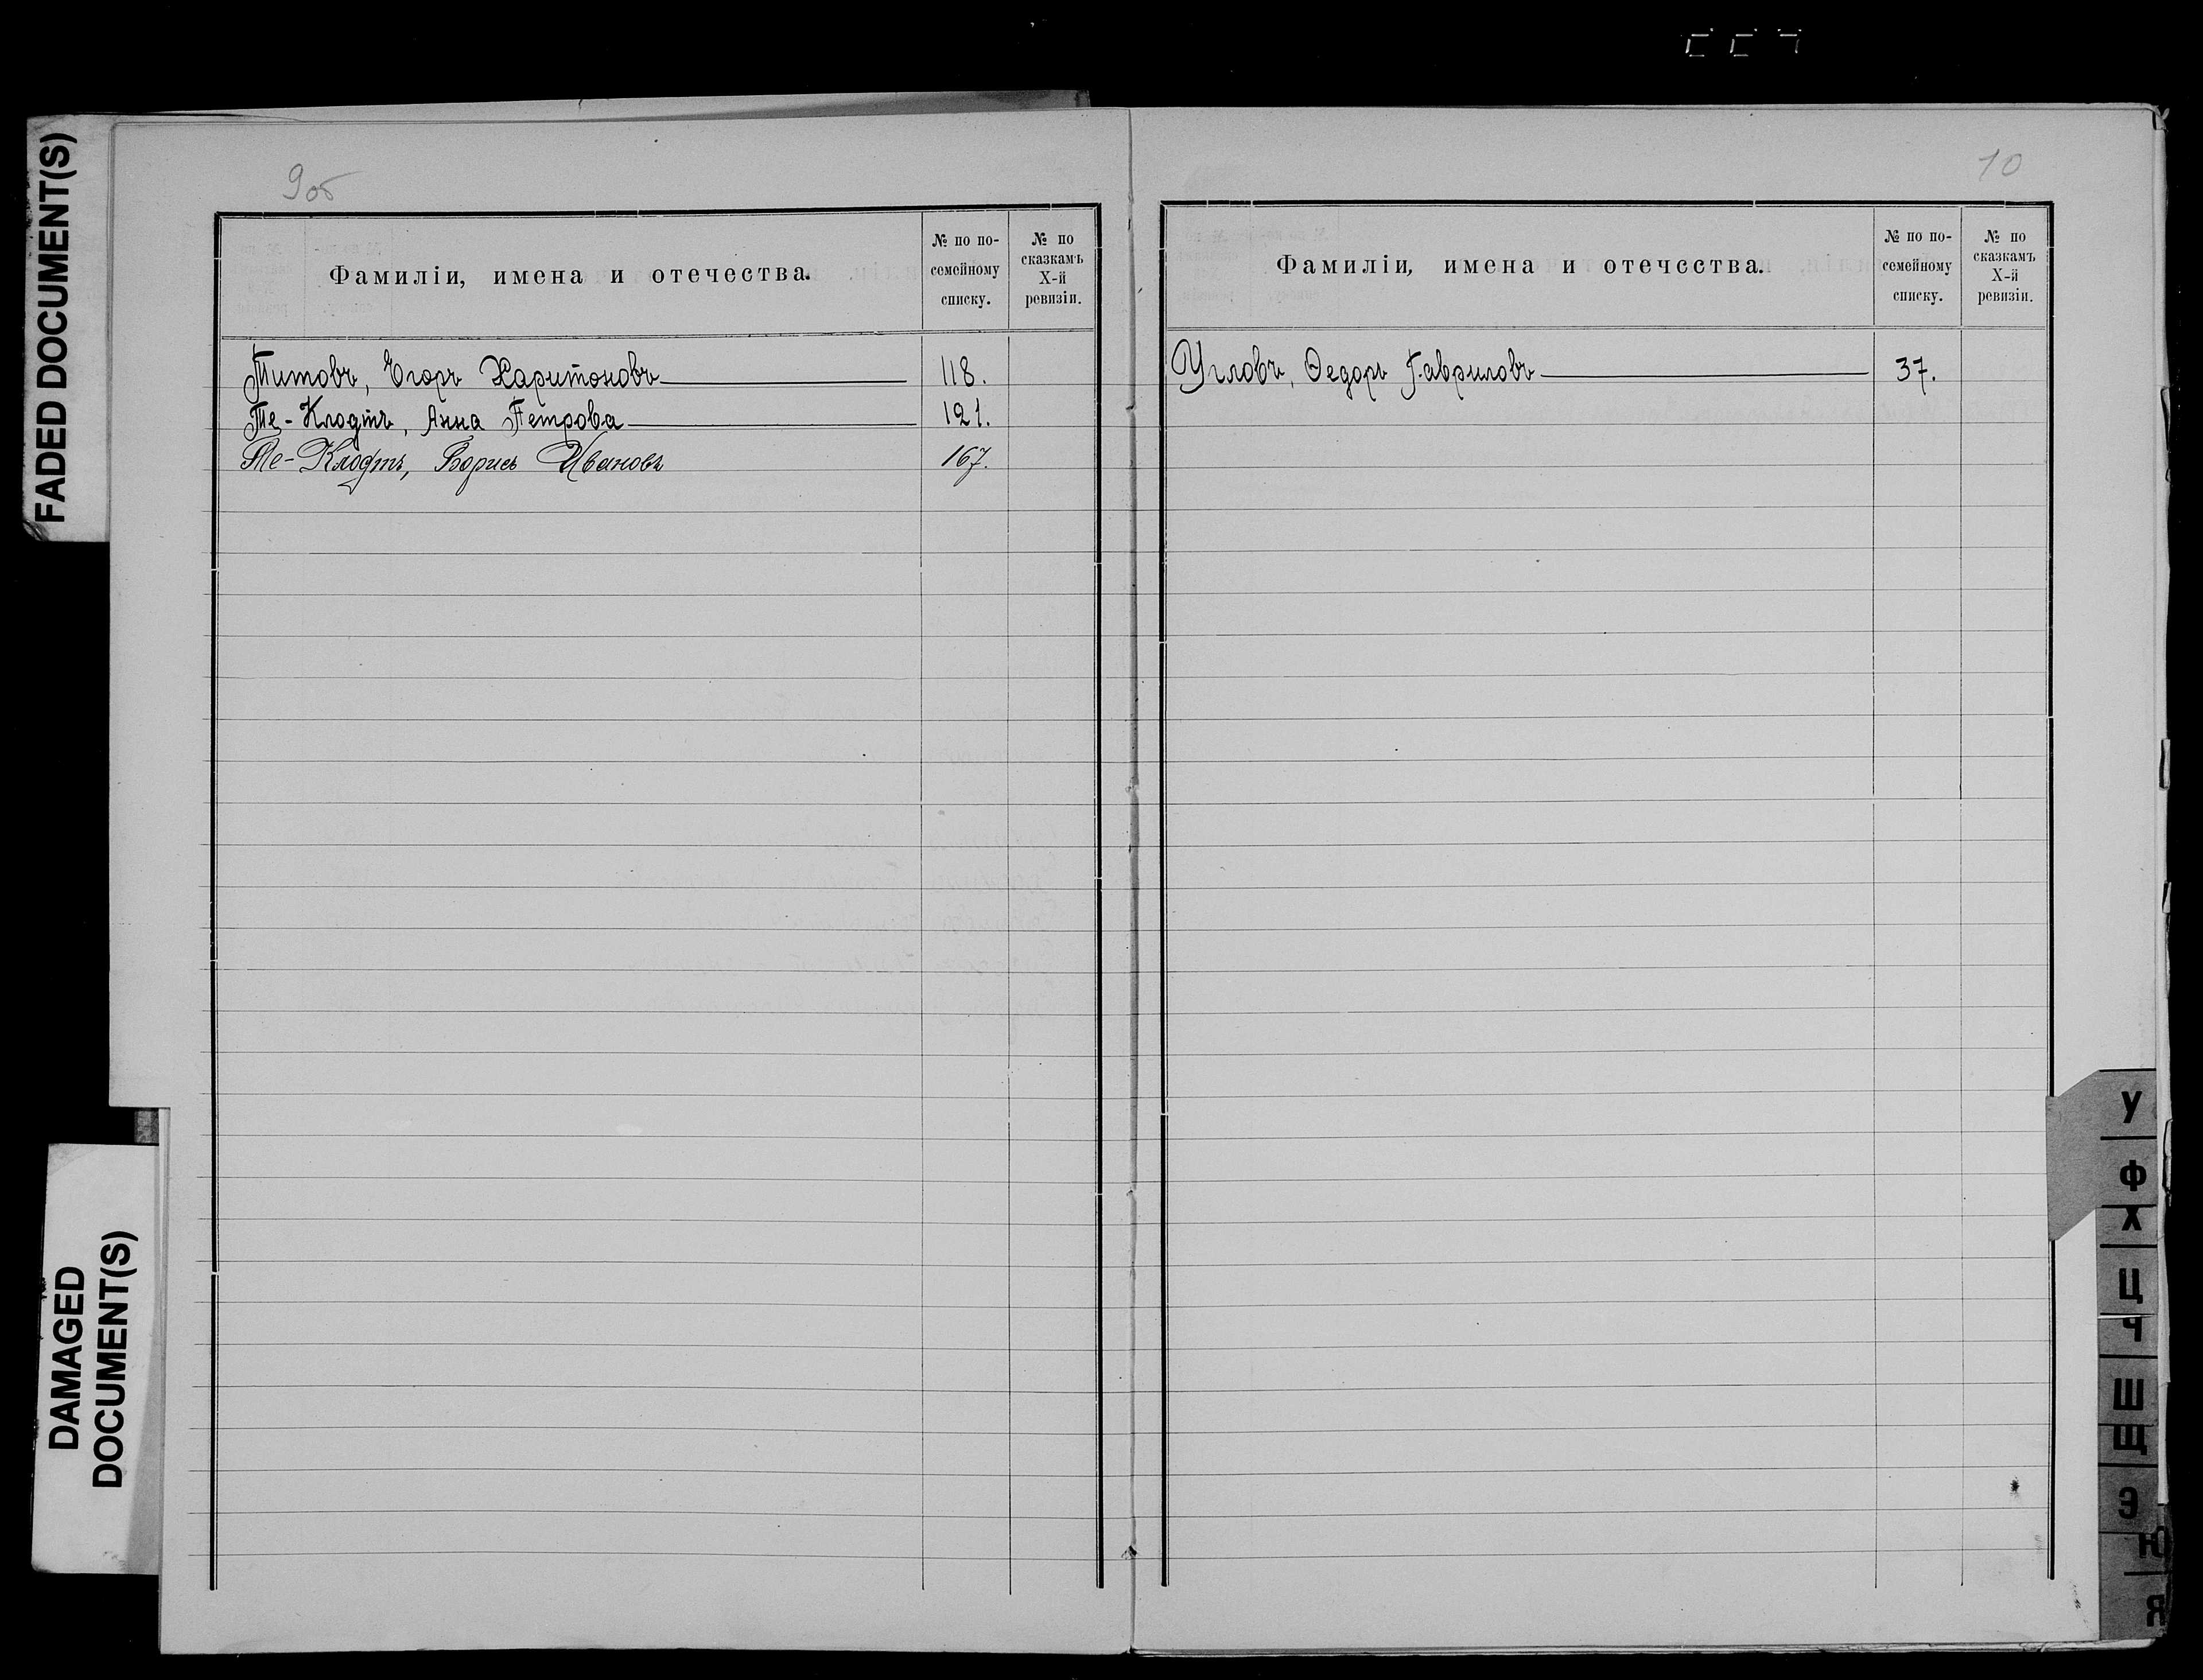 FADED DOCUMENT(S)
DAMAGED
DOCUMENT(S)
9об
Фамиліи, имена и отечества.
№ по по-
семейному
списку.
№ по
сказкамъ
X-й
ревизіи.
Титовъ, Егоръ Харитоновъ 118.
Те-Клодтъ, Анна Петрова 121.
Те-Клодтъ, Борисъ Ивановъ 167.
10
Фамиліи, имена и отечества.
№ по по-
семейному
списку.
№ по
сказкамъ
X-й
ревизіи.
Угловъ, Ѳедоръ Гавриловъ 37.
У
Ф
Х
Ц
Ч
Ш
Щ
Э
Ю
Я